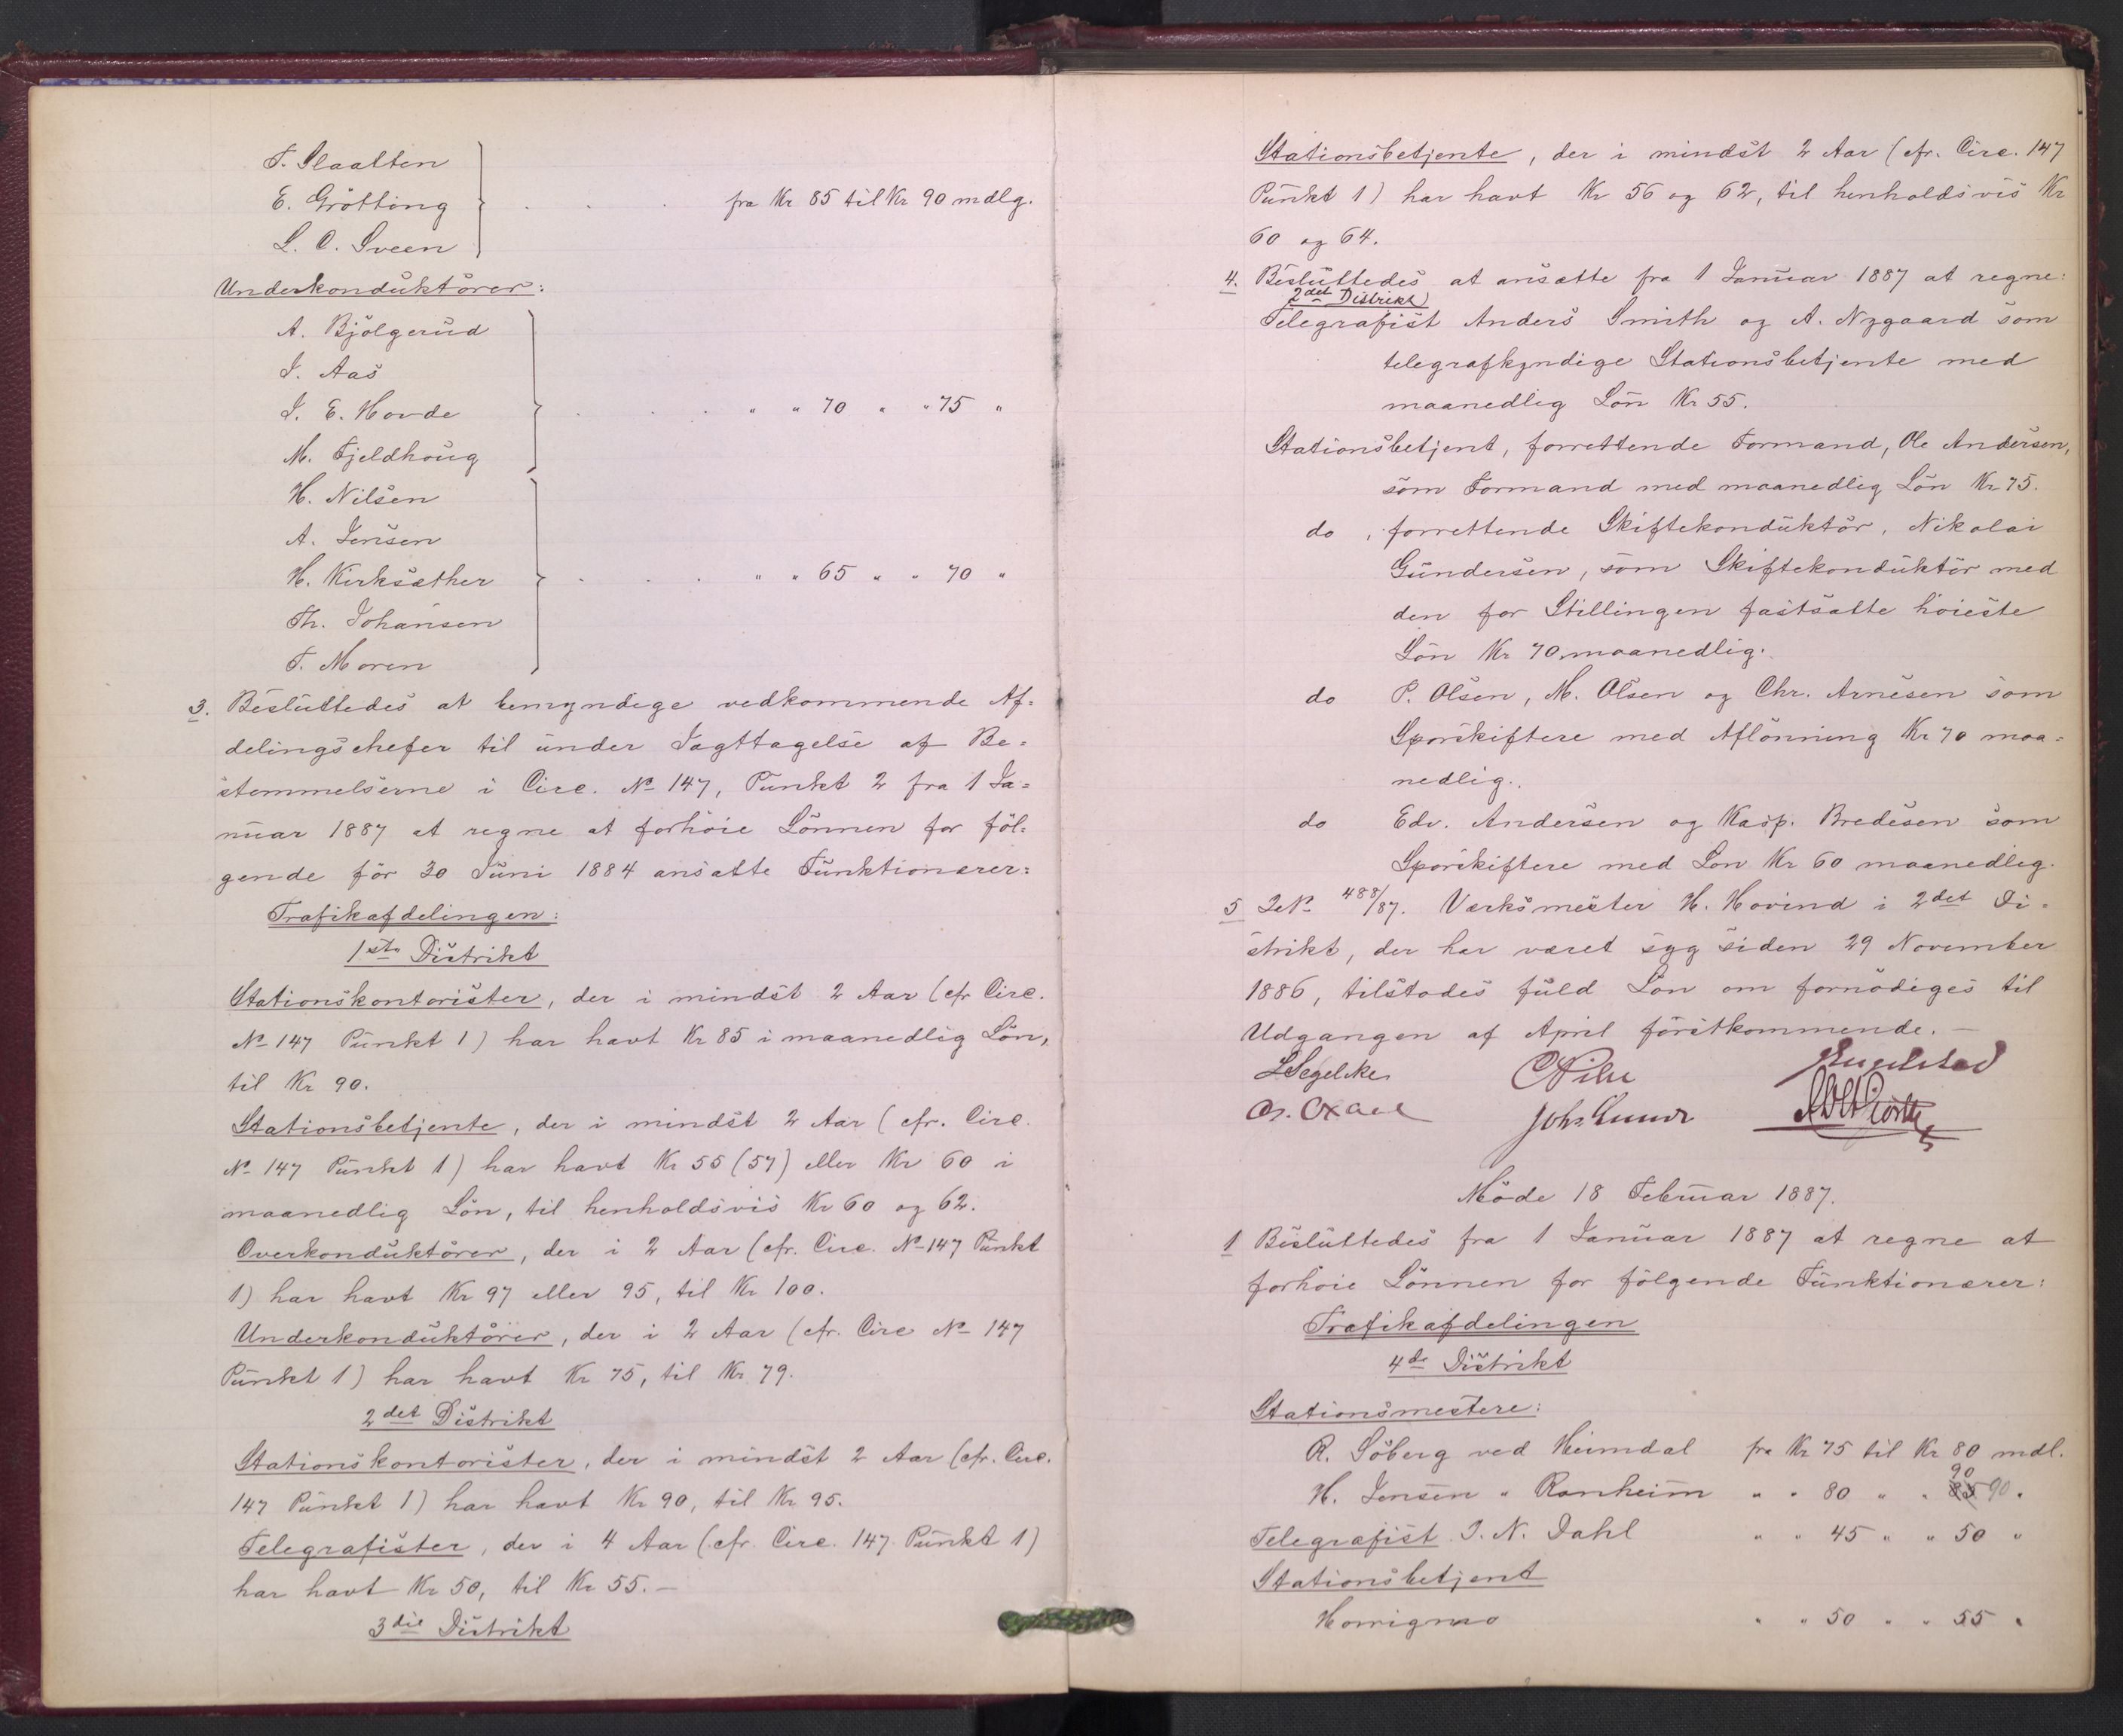 T. Slaatten
E. Grötting } . . . fra Kr 85 til Kr 90 mdlg.
L. C. Sveen
Underkonduktörer:
A. Bjölgerud
I. Aas
I. E. Hovde } . . . . " " 70 " " 75 "
M. Fjeldhoug
H. Nilsen
A. Jensen
H. Kirksæther } . . . . " " 65 " " 70 "
Th. Johansen
T. Moren
3. Besluttedes at bemyndige vedkommende Af=
delingschefer til under Iagttagelse af Be=
stemmelserne i Circ. No 147, Punkt 2 fra 1 Ja=
nuar 1887 at regne at forhöie Lönnen for föl=
gende för 30 Juni 1884 ansatte Funktionærer:
Trafikafdelingen:
1ste Distrikt
Stationskontorister, der i mindst 2 Aar (cfr Circ.
No 147 Punkt 1) har havt Kr 85 i maanedlig Lön,
til Kr 90.
Stationsbetjente, der i mindst 2 Aar (cfr. Circ.
No 147 Punkt 1) har havt Kr 55 (57) eller Kr 60 i
maanedlig Lön, til henholdsvis Kr 60 og 62.
Overkonduktörer, der i 2 Aar (cfr. Circ. No 147 Punkt
1) har havt Kr 97 eller 95, til Kr 100.
Underkonduktörer, der i 2 Aar (cfr. Circ No 147
Punkt 1) har havt Kr 75, til Kr 79.
2det Distrikt
Stationskontorister, der i mindst 2 Aar (cfr. Circ.
147 Punkt 1) har havt Kr 90, til Kr 95.
Telegrafister, der i 4 Aar (cfr. Circ. 147 Punkt 1)
har havt Kr 50, til Kr 55. —
3die Distrikt
Stationsbetjente, der i mindst 2 Aar (cfr. Circ. 147
Punkt 1) har havt Kr 56 og 62, til henholdsvis Kr
60 og 64.
4. Besluttedes at ansætte fra 1 Januar 1887 at regne:
2det Distrikt
Telegrafist Anders Smith og A. Nygaard som
telegrafkyndige Stationsbetjente med
maanedlig Lön Kr 55.
Stationsbetjent, forrettende Formand, Ole Andersen,
som Formand med maanedlig Lön Kr 75.
do , forrettende Skiftekonduktör, Nikolai
Gundersen, som Skiftekonduktör med
den for Stillingen fastsatte höieste
Lön Kr 70 maanedlig.
do P. Olsen, M. Olsen og Chr. Arnesen som
Sporskiftere med Aflönning Kr 70 maa=
nedlig.
do Edv. Andersen og Kasp. Bredesen som
Sporskiftere med Lon Kr 60 maanedlig.
5 No 488/87. Værksmester H. Hovind i 2det Di=
strikt, der har været syg siden 29 November
1886, tilstodes fuld Lön om fornödiges til
Udgangen af April förstkommende. —
LSegelcke CPihl Engelstad
Joh. Gunnr
Möde 18 Februar 1887.
1 Besluttedes fra 1 Januar 1887 at regne at
forhöie Lönnen for fölgende Funktionærer:
Trafikafdelingen
4de Distrikt
Stationsmestere:
R. Söberg ved Heimdal fra Kr 75 til Kr 80 mdl.
90
H. Jensen " Ranheim " " 80 " " 85 90 "
Telegrafist I. N. Dahl " " 45 " " 50 "
Stationsbetjent
Horrigmo " " 50 " " 55 "